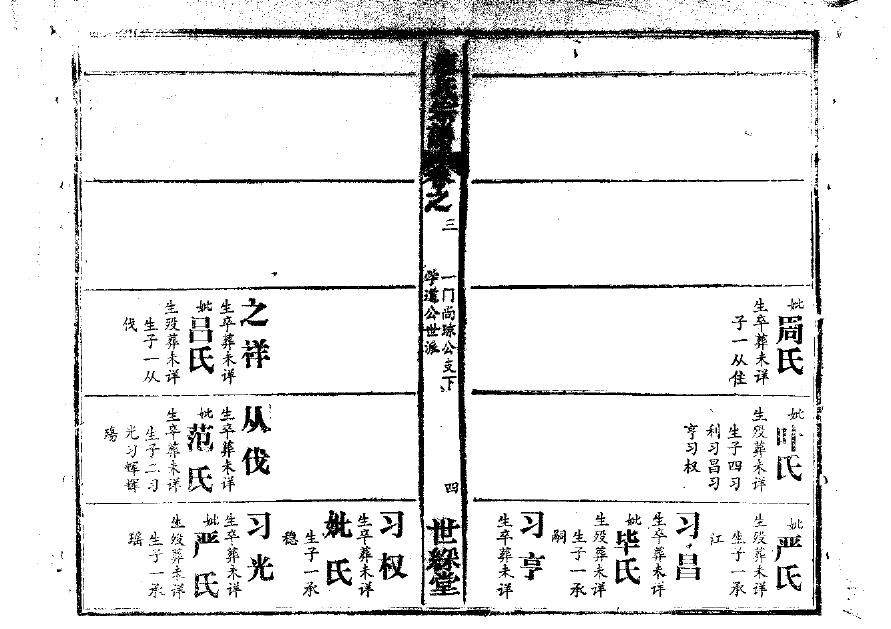 妣周氏
生卒葬未详
子一从佳
妣叶氏
生殁葬未详
生子四习
利习昌习
亨习权
妣严氏
生殁葬未详
生子一承
江
习昌
生卒葬未详
妣毕氏
生殁葬未详
生子一承
嗣
习亨
生卒葬未详
氏宗谱卷之三
一门尚琼公支下
学道公世派
四
世綵堂
之祥
生卒葬未详
妣吕氏
生殁葬未详
生子一从
伐
从伐
生卒葬未详
妣范氏
生卒葬未详
生子二习
光习辉
习权
生卒葬未详
妣氏
生子一承
稳
习光
生卒葬未详
妣严氏
生殁葬未详
生子一承
瑶